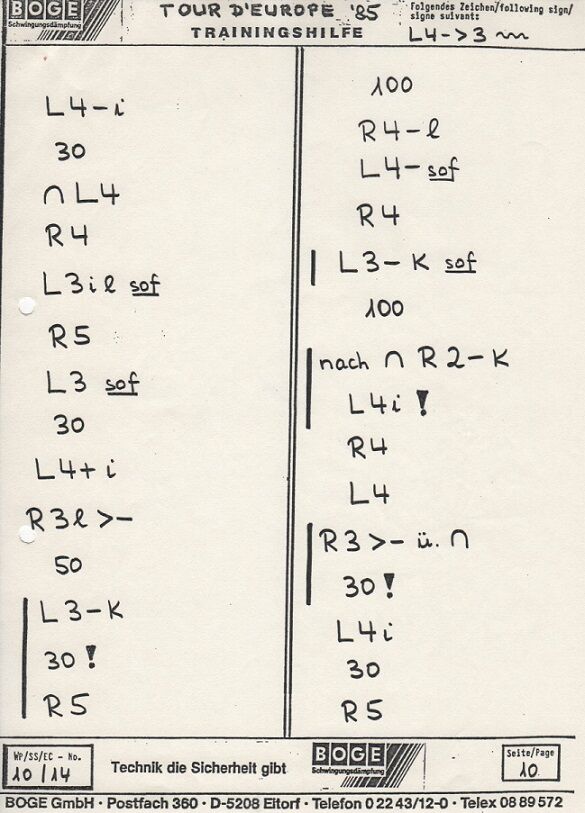 BOGE
Schwingungsdämpfung
TOUR D'EUROPE '85
TRAININGSHILFE
Folgendes Zeichen/following sign/
signe suivant:
L4->3
L4-i
30
∩ L4
R4
L3il sof
R5
L3 sof
30
L4+i
R3l >-
50
L3-K
30!
R5
100
R4-l
L4-sof
R4
L3-K sof
100
nach ∩ R2-K
L4i!
R4
L4
R3 >- ü. ∩
30!
L4i
30
R5
WP/SS/EC - No.
10/14
Technik die Sicherheit gibt
BOGE
Schwingungsdämpfung
Seite/Page
10
BOGE GmbH · Postfach 360 · D-5208 Eitorf · Telefon 0 22 43/12-0 · Telex 08 89 572